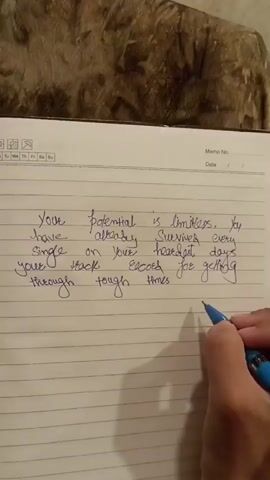 Memo No.
Date / /
Mo Tu We Th Fr Sa Su
Your potential is limitless. You
have already survived every
single on your heardest days
your track record for getting
through tough times